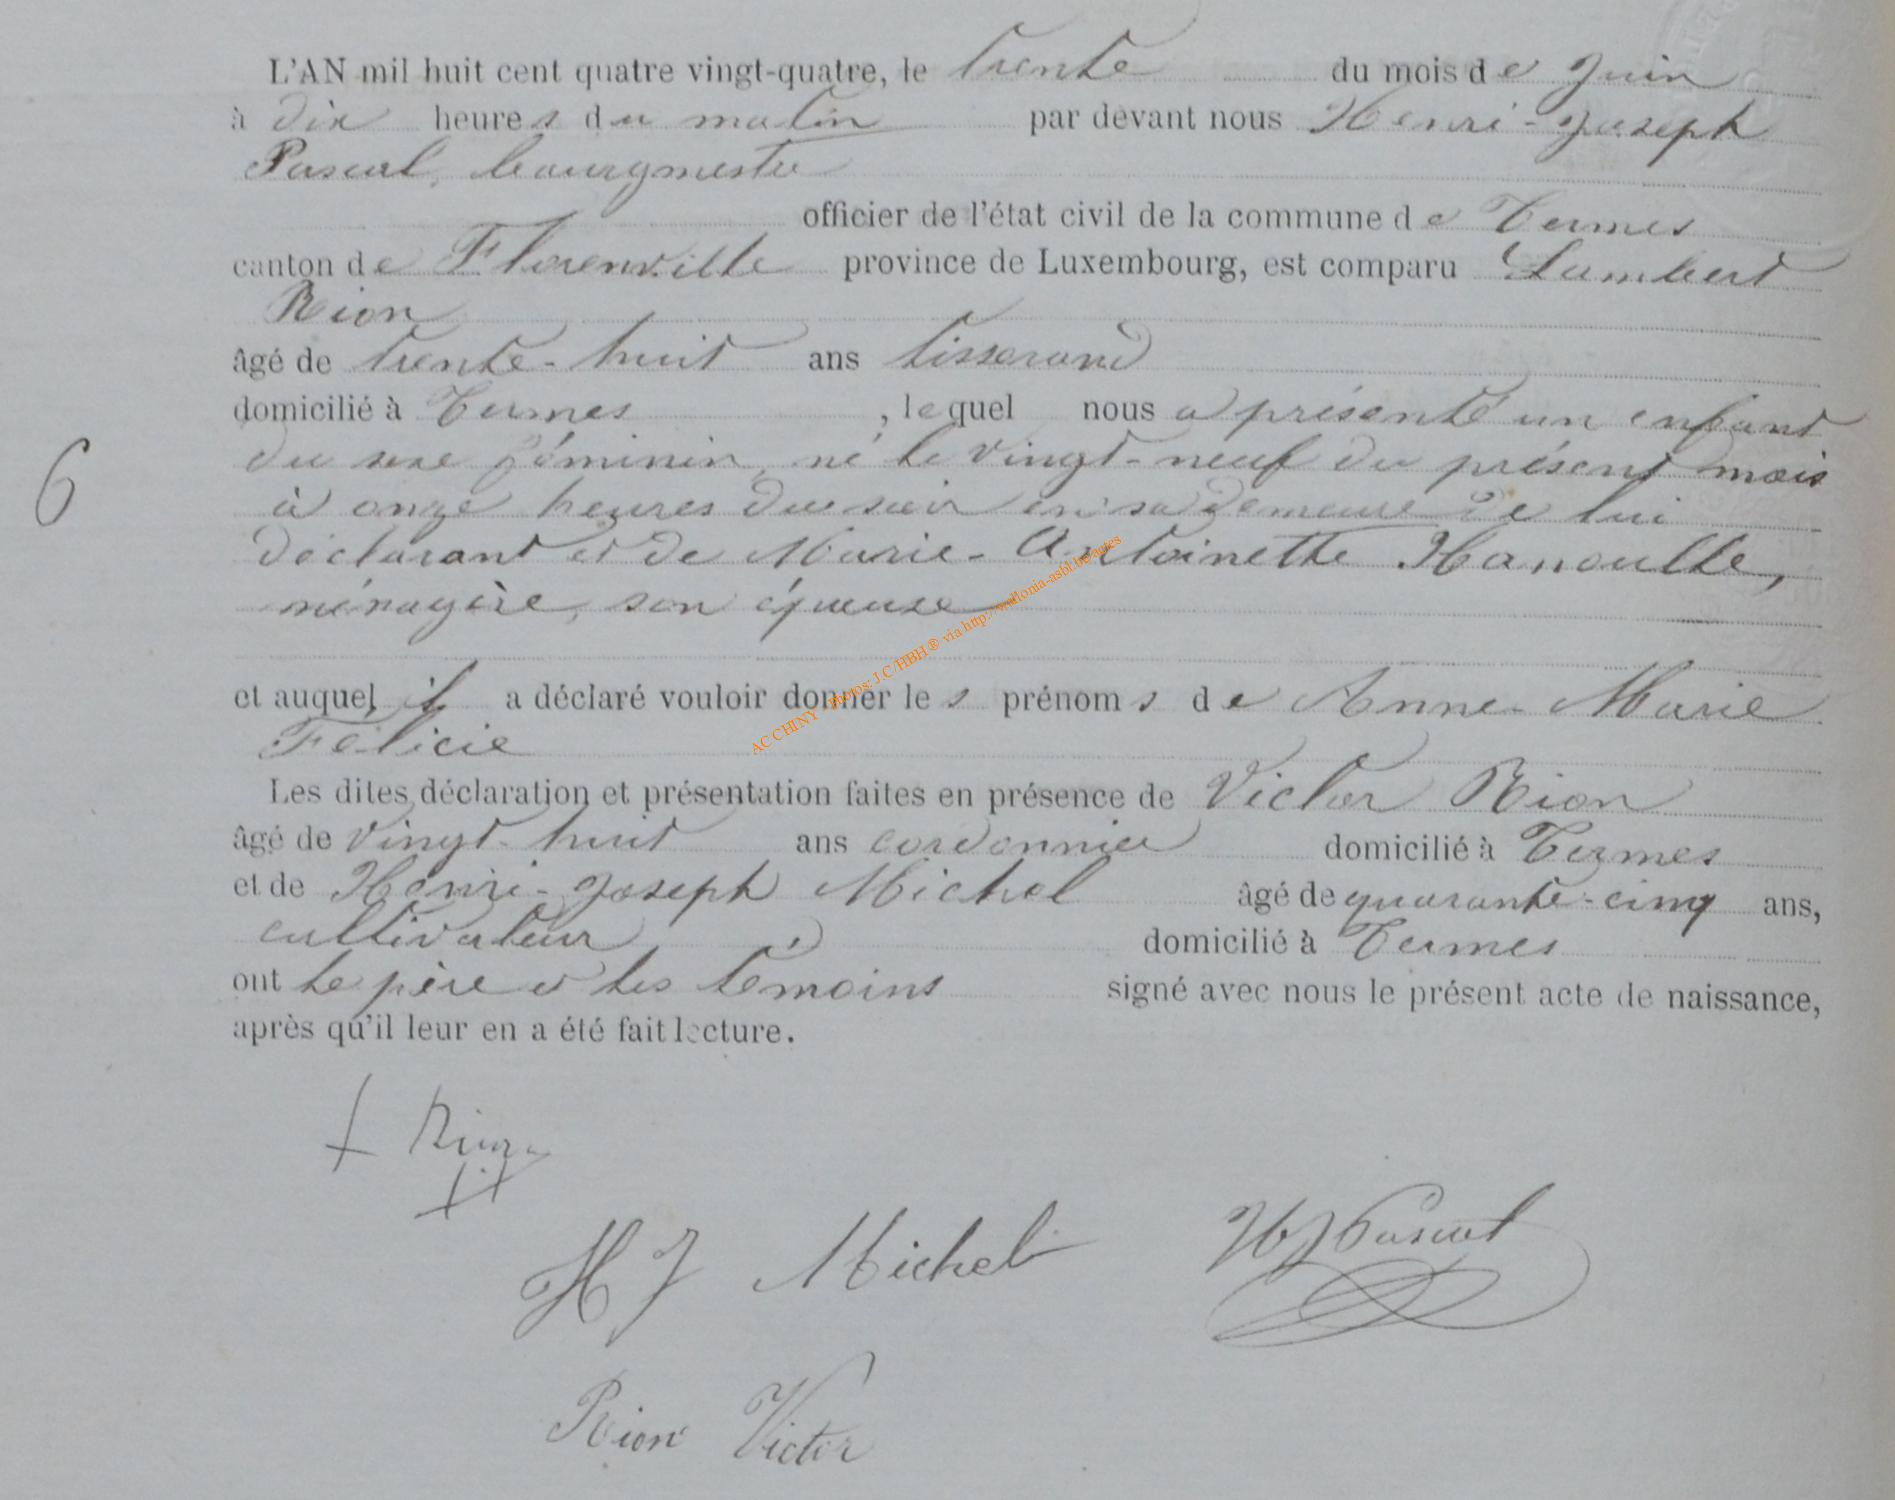 L'AN mil huit cent quatre vingt-quatre, le trente du mois de Juin
à dix heures du matin par devant nous Henri-Joseph
Pascal, bourgmestre
officier de l'état civil de la commune de Termes
canton de Florenville province de Luxembourg, est comparu Lambert
Rion
âgé de trente-huit ans tisserand
domicilié à Termes , lequel nous a présenté un enfant
du sexe féminin, né le vingt-neuf du présent mois
à onze heures du soir en sa demeure de lui
déclarant et de Marie-Antoinette Hanoulle,
ménagère, son épouse
et auquel il a déclaré vouloir donner les prénoms de Anne-Marie
Félicie
Les dites déclaration et présentation faites en présence de Victor Rion
âgé de vingt-huit ans cordonnier domicilié à Termes
et de Henri-Joseph Michel âgé de quarante-cinq ans,
6
cultivateur domicilié à Termes
ont le père et les témoins signé avec nous le présent acte de naissance,
après qu'il leur en a été fait lecture.
AC CHINY - Photos: J.C/HBH ® via http://wallonia-asbl.be/actes
Rion
H J Michel HJ Pascal
Rion Victor